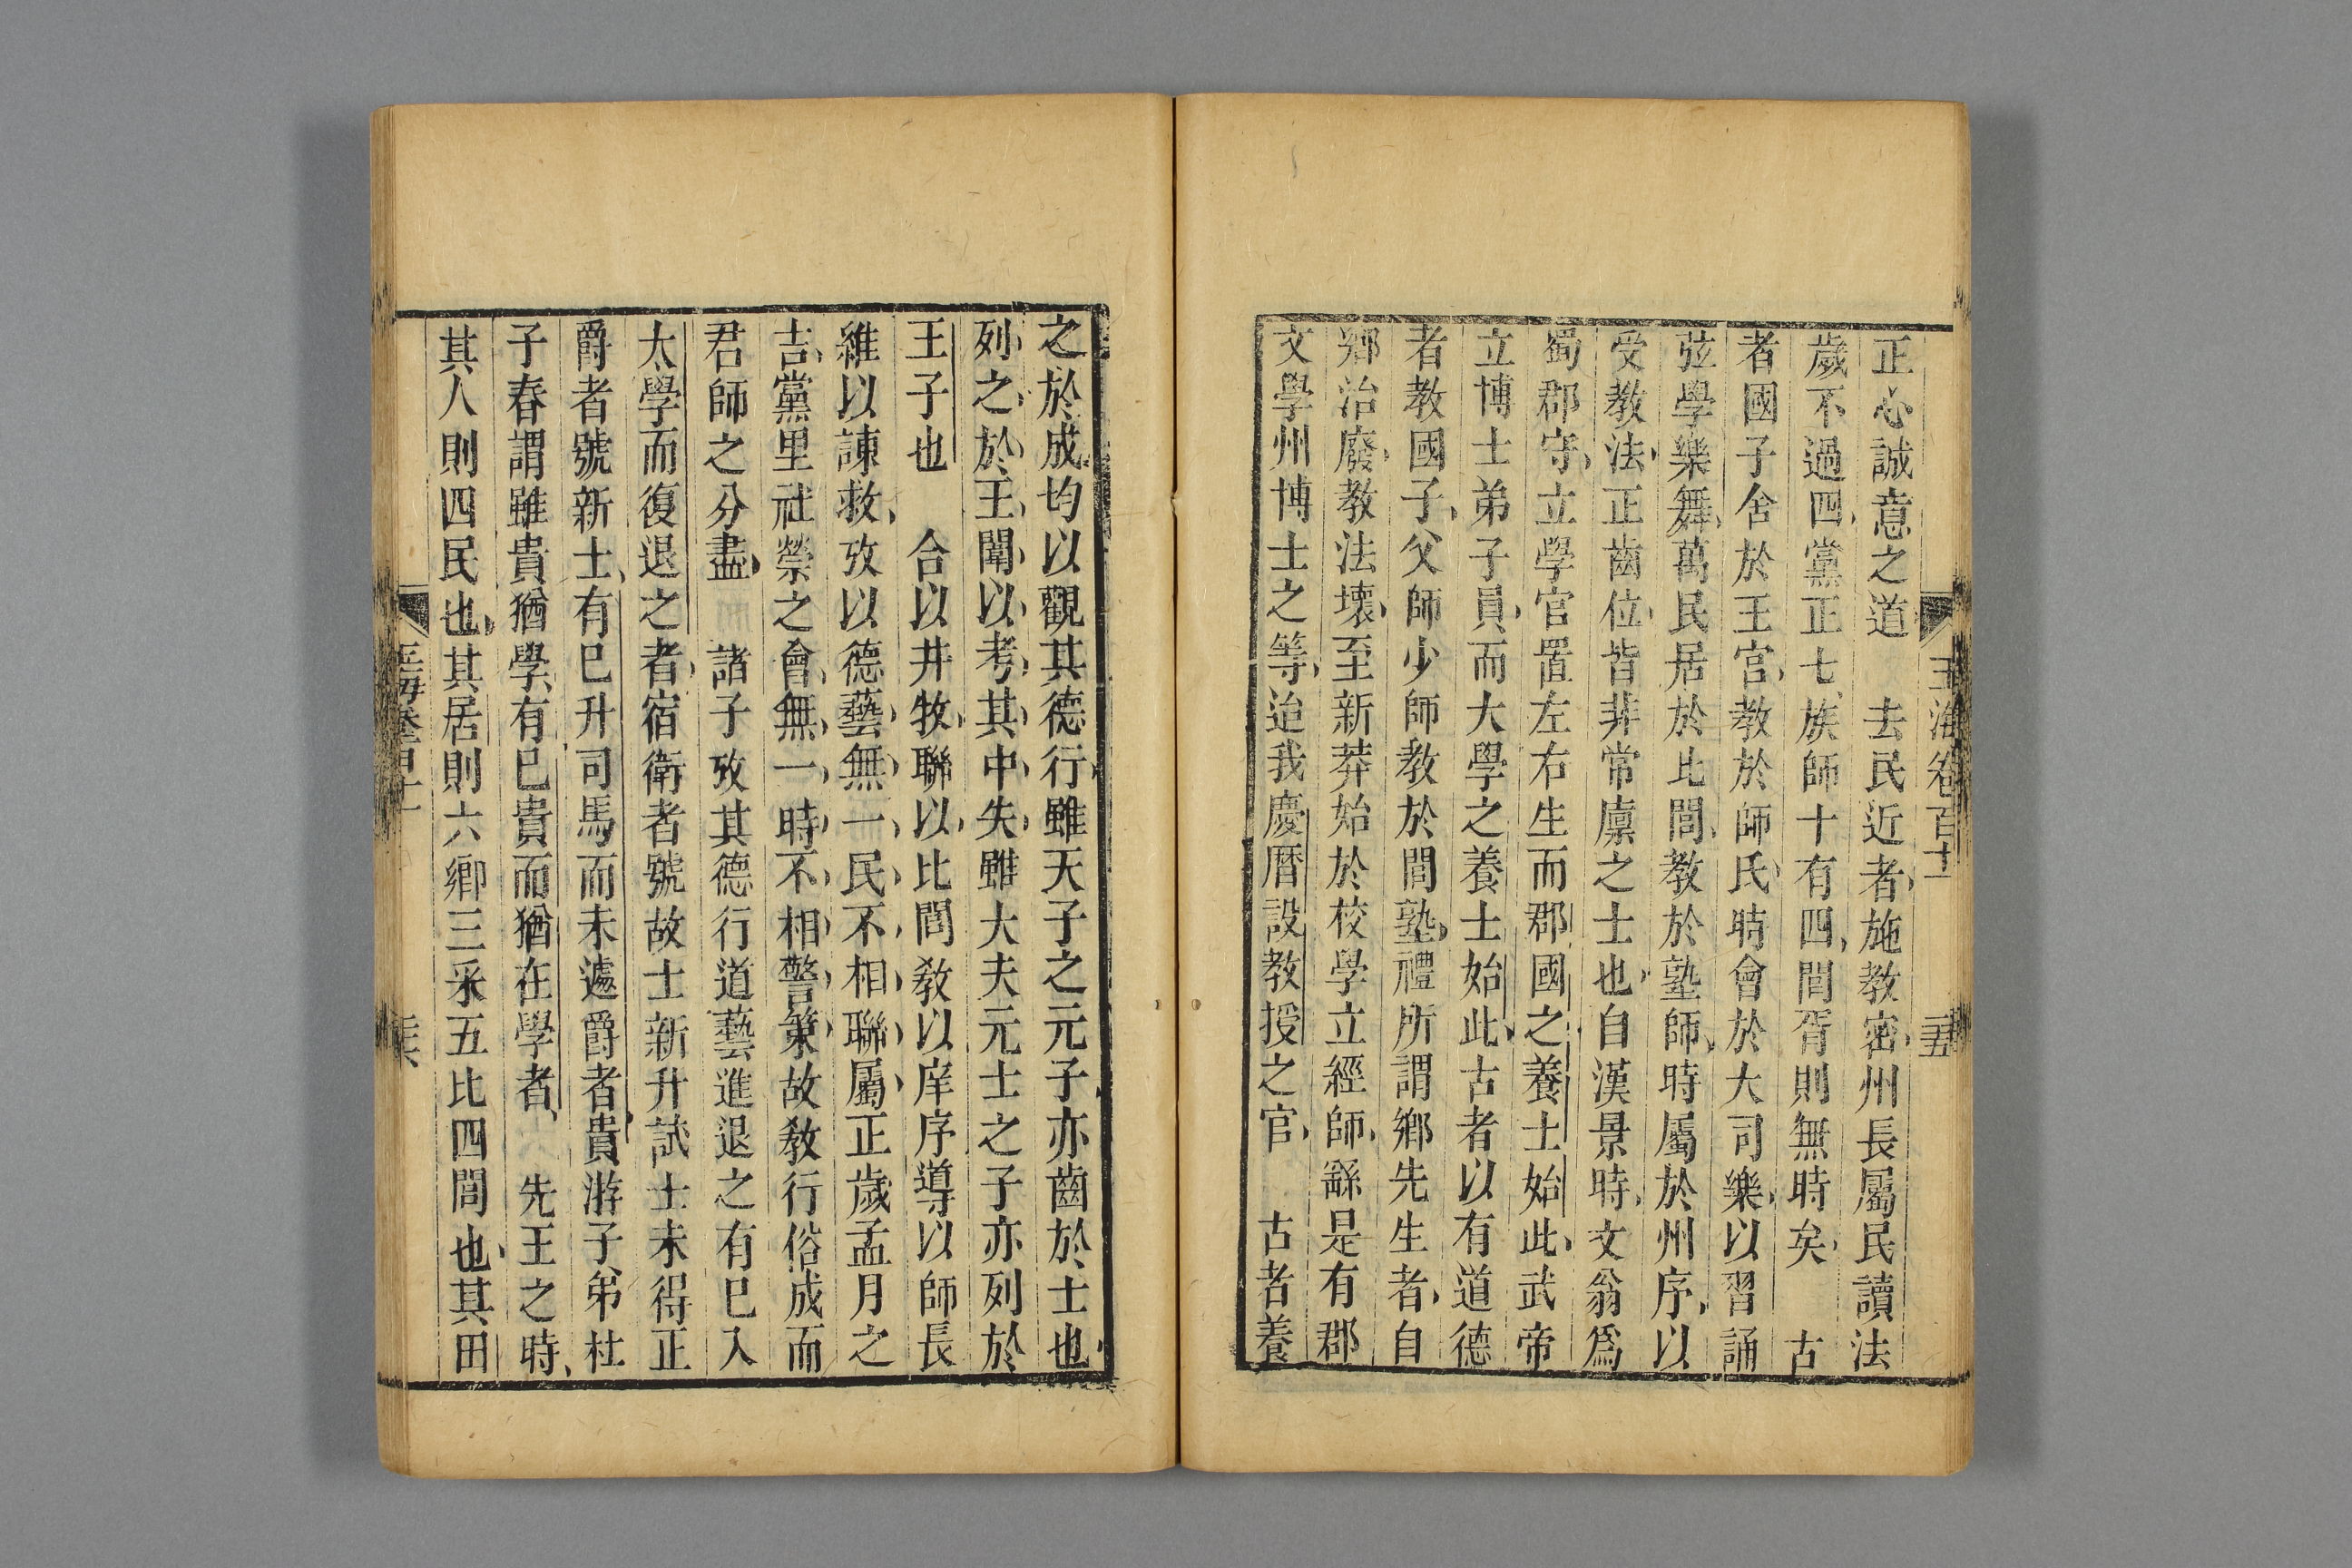 玉海卷百十 二五
正心誠意之道 去民近者施教密州長屬民讀法
歲不過四黨正七族師十有四閭胥則無時矣 古
者國子舍於王宮教於師氏時會於大司樂以習誦
弦學樂舞萬民居於比閭教於塾師時屬於州序以
受教法正齒位皆非常廩之士也自漢景時文翁爲
蜀郡守立學官置左右生而郡國之養士始此武帝
立博士弟子員而大學之養士始此古者以有道德
者教國子父師少師教於閭塾禮所謂鄉先生者自
鄉治廢教法壞至新莽始於校學立經師繇是有郡
文學州博士之等迨我慶曆設教授之官 古者養
之於成均以觀其德行雖天子之元子亦齒於士也
列之於王闈以考其中失雖大夫元士之子亦列於
王子也 合以井牧聯以比閭教以庠序導以師長
維以諫救攷以德藝無一民不相聯屬正歲孟月之
吉黨里社禜之會無一時不相警策故教行俗成而
君師之分盡 諸子攷其德行道藝進退之有已入
太學而復退之者宿衛者號故士新升試士未得正
爵者號新士有已升司馬而未遽爵者貴游子弟杜
子春謂雖貴猶學有已貴而猶在學者 先王之時
其人則四民也其居則六鄉三采五比四閭也其田